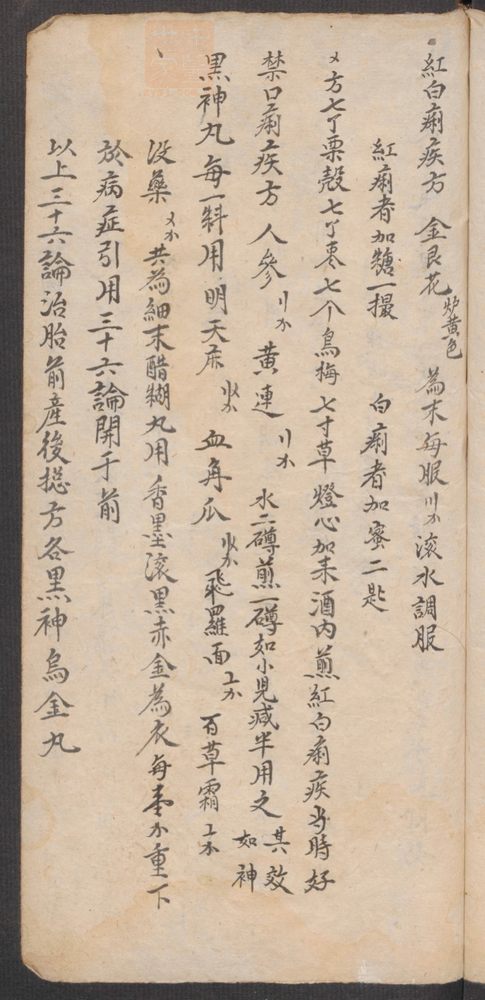 紅白痢疾方 金艮花 炒黄色 為末每服〢錢滾水調服
紅痢者加糖一撮 白痢者加蜜二匙
又方七丁栗殼七丁枣七个烏梅七寸草燈心加来酒内煎紅白痢疾当時好
禁口痢疾方 人參 黃連 水二罇煎一罇如小兒减半用之其效如神
黒神丸每一料用明天麻 血角瓜 飛羅面 百草霜
没藥 共為細末醋糊丸用香墨滚黒赤金為衣每重下
於病症引用三十六論開于前
以上三十六論治胎前産後総方各黒神烏金丸